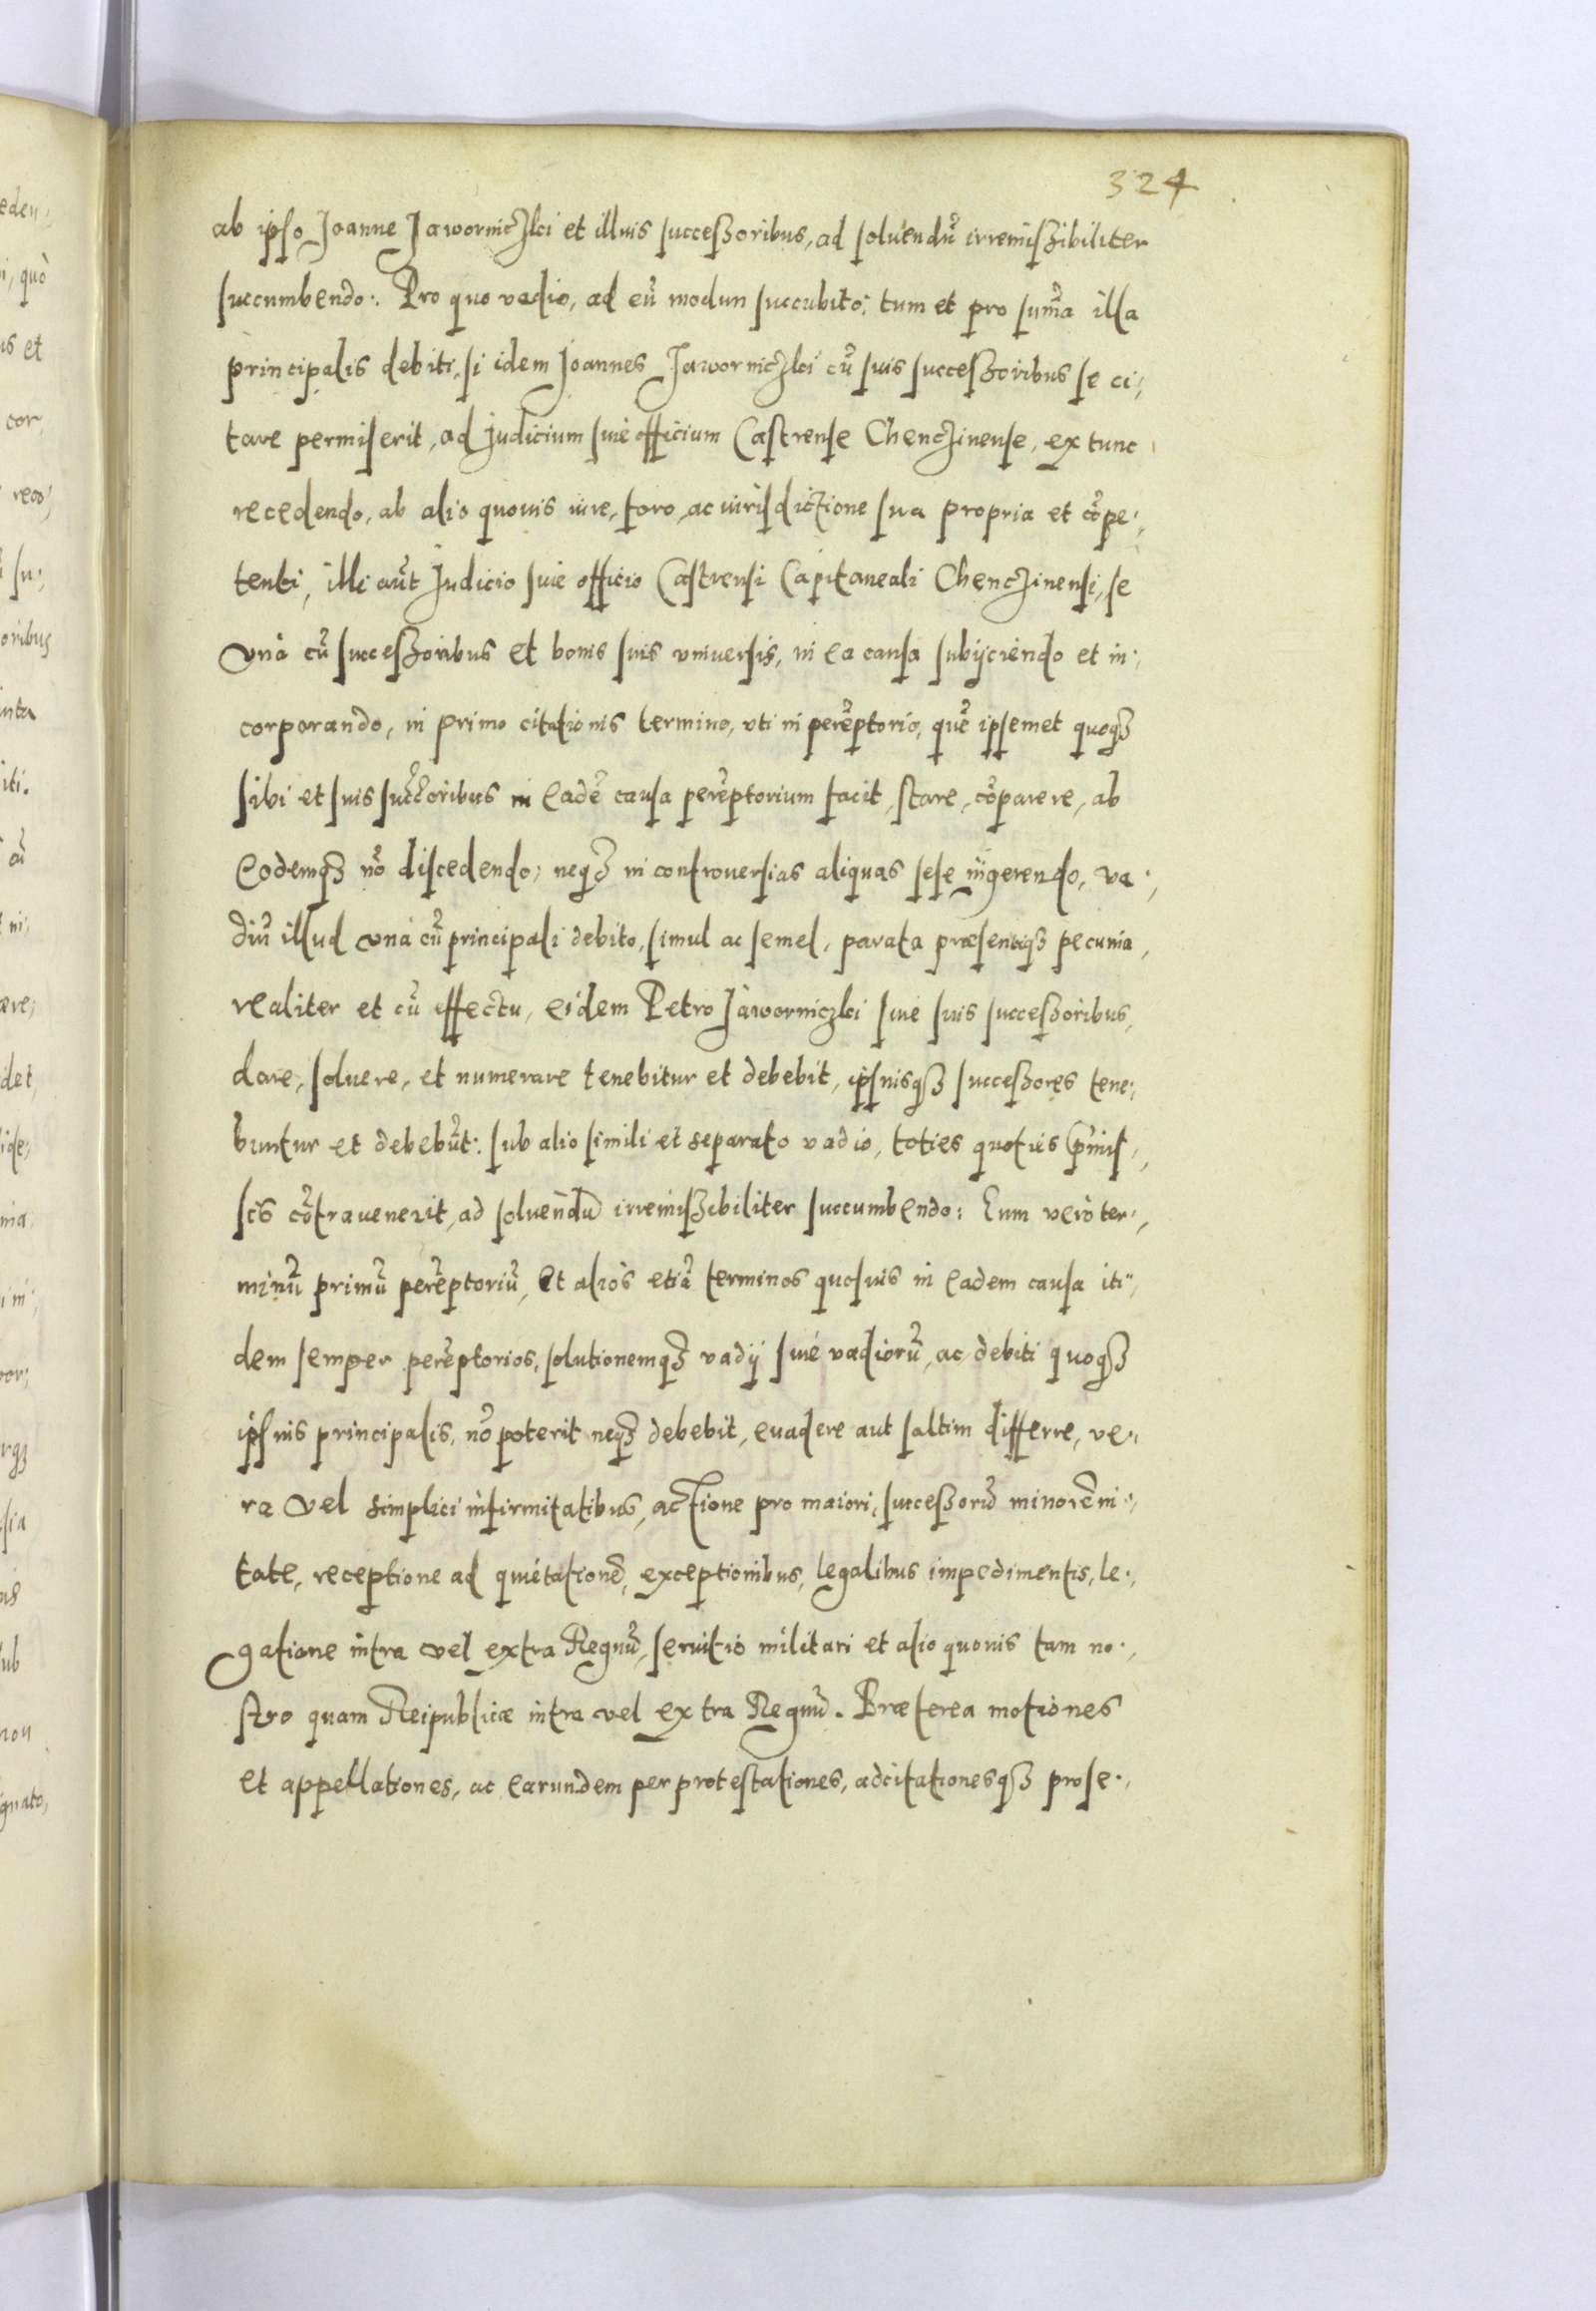 324
ab ipso Joanne Jaworniczki et illius successoribus, ad soluendũ irremissibiliter
succumbendo: Pro quo vadio, ad eũ modum succubito; tum et pro sum̃a illa
principalis debiti, si idem Joannes Jaworniczki cũ suis successoribus se ci,
tare permiserit, ad Judicium siue officium Castrense Chenczinense, ex tunc
recedendo, ab alio quouis iure, foro, ac iurisdictione sua propria et cõpe,
tenti, illi aũt Judicio siue officio Castrensi Capitaneali Chenczinensi, se
vnà cũ successoribus et bonis suis vniuersis, in ea causa subijciendo et in,
corporando, in primo citationis termino, vti in perẽptorio, quẽ ipsemet quoqȝ
sibi et suis succ̃oribus in eadẽ causa perẽptorium facit, stare, cõparere, ab
eodemqȝ nõ discedendo; neqȝ in controuersias aliquas sese ingerendo, va,
diũ illud vnà cũ principali debito, simul ac semel, parata præsentiqȝ pecunia,
realiter et cũ effectu, eidem Petro Jaworniczki siue suis successoribus,
dare, soluere, et numerare tenebitur et debebit, ipsiusqȝ successores tene,
buntur et debebũt: sub alio simili et separato vadio, toties quoties p̃mis,
sis cõtrauenerit, ad soluendũ irremissibiliter succumbendo: Eum verò ter,
minũ primũ perẽptoriũ, et alios etiã terminos quosuis in eadem causa iti,
dem semper perẽptorios, solutionemqȝ vadij siue vadiorũ, ac debiti quoqȝ
ipsius principalis, nõ poterit neqȝ debebit, euadere aut saltim differre, ve,
ra vel simplici infirmitatibus, actione pro maiori, successorũ minorẽni,
tate, receptione ad quietationẽ, exceptionibus, legalibus impedimentis, le,
gatione intra vel extra Regnũ, seruitio militari et alio quouis tam no,
stro quam Reipublicæ intra vel extra Regnũ. Præterea motiones
et appellationes, ac earundem per protestationes, adcitationesqȝ prose,